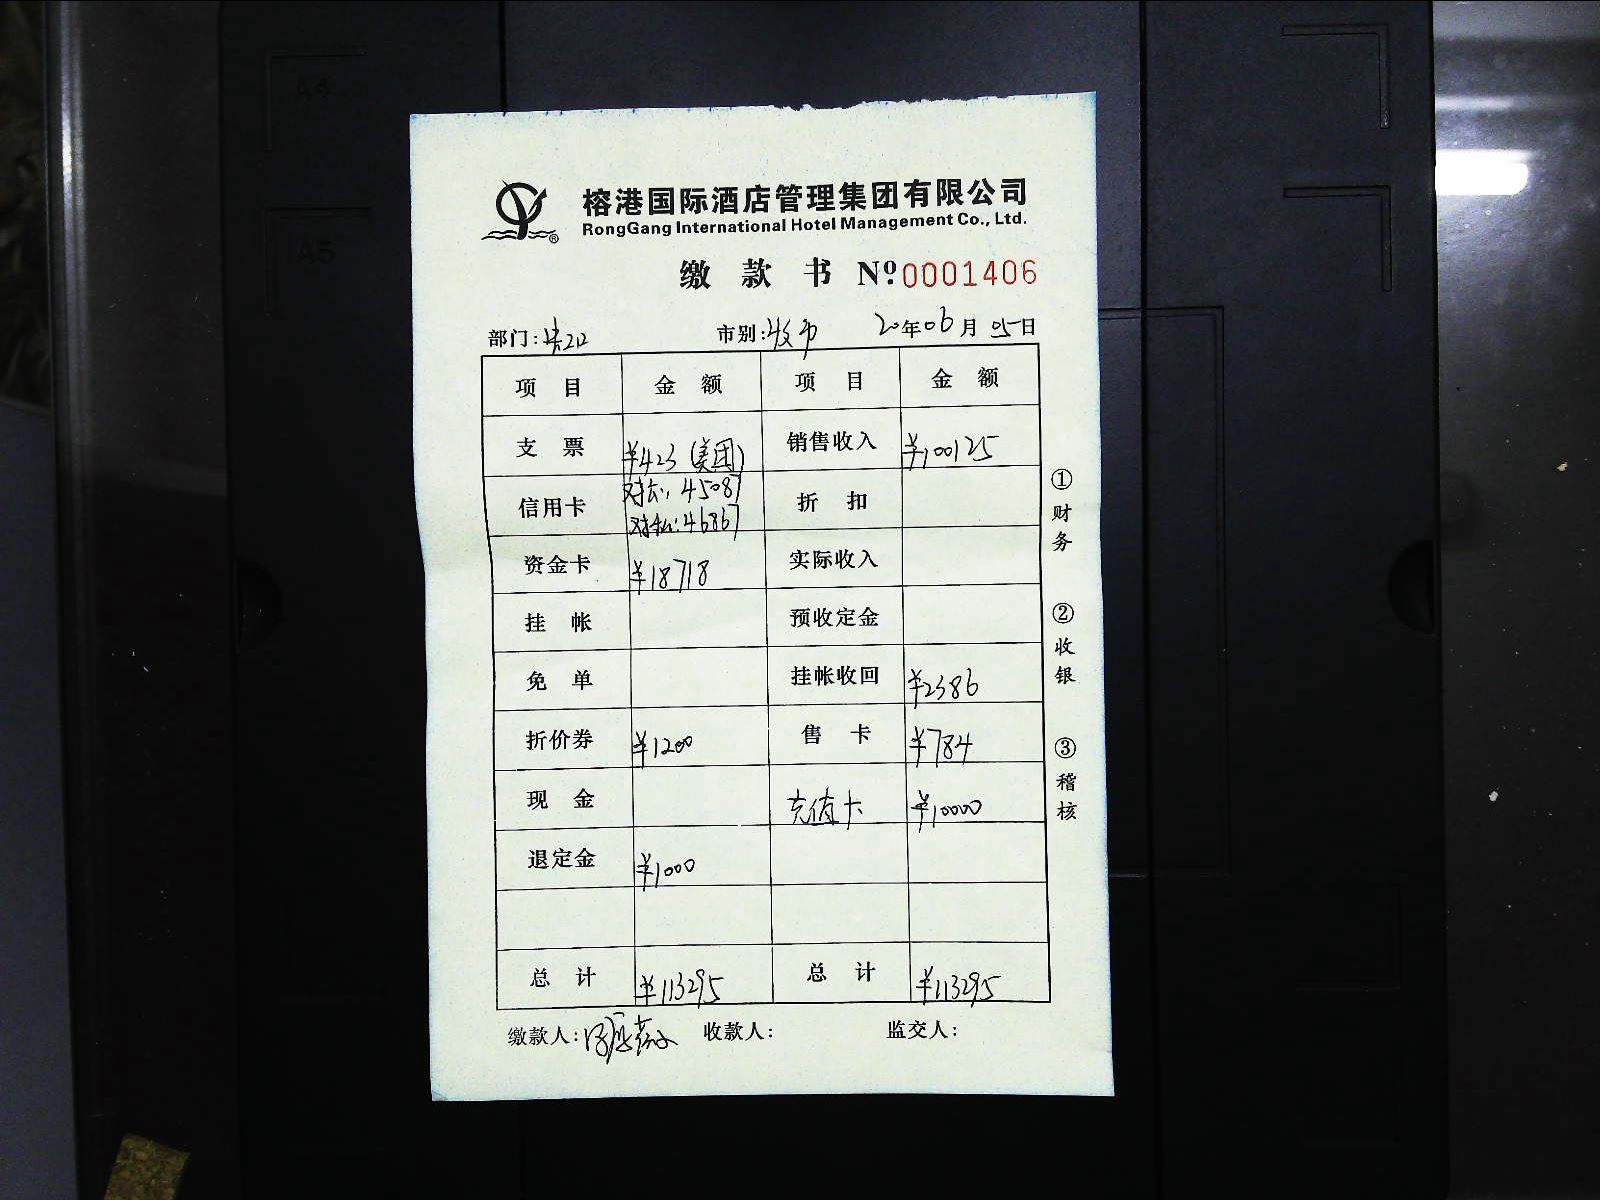 榕港国际酒店管理集团有限公司
RongGang International Hotel Management Co., Ltd.
缴 款 书 Nº.0001406
部门: 市别:收市 20年06月05日
项 目 金 额 项 目 金 额
支 票 ¥423(美团) 销售收入 ¥100125
信用卡 对公:45087 折 扣
对私:46867
资金卡 ¥18718 实际收入
挂 帐 预收定金
免 单 挂帐收回 ¥2386
折价券 ¥1200 售 卡 ¥784
现 金 充值卡 ¥10000
退定金 ¥1000
总 计 ¥113295 总 计 ¥113295
缴款人: 收款人: 监交人:
①财务 ②收银 ③稽核
A4
A5